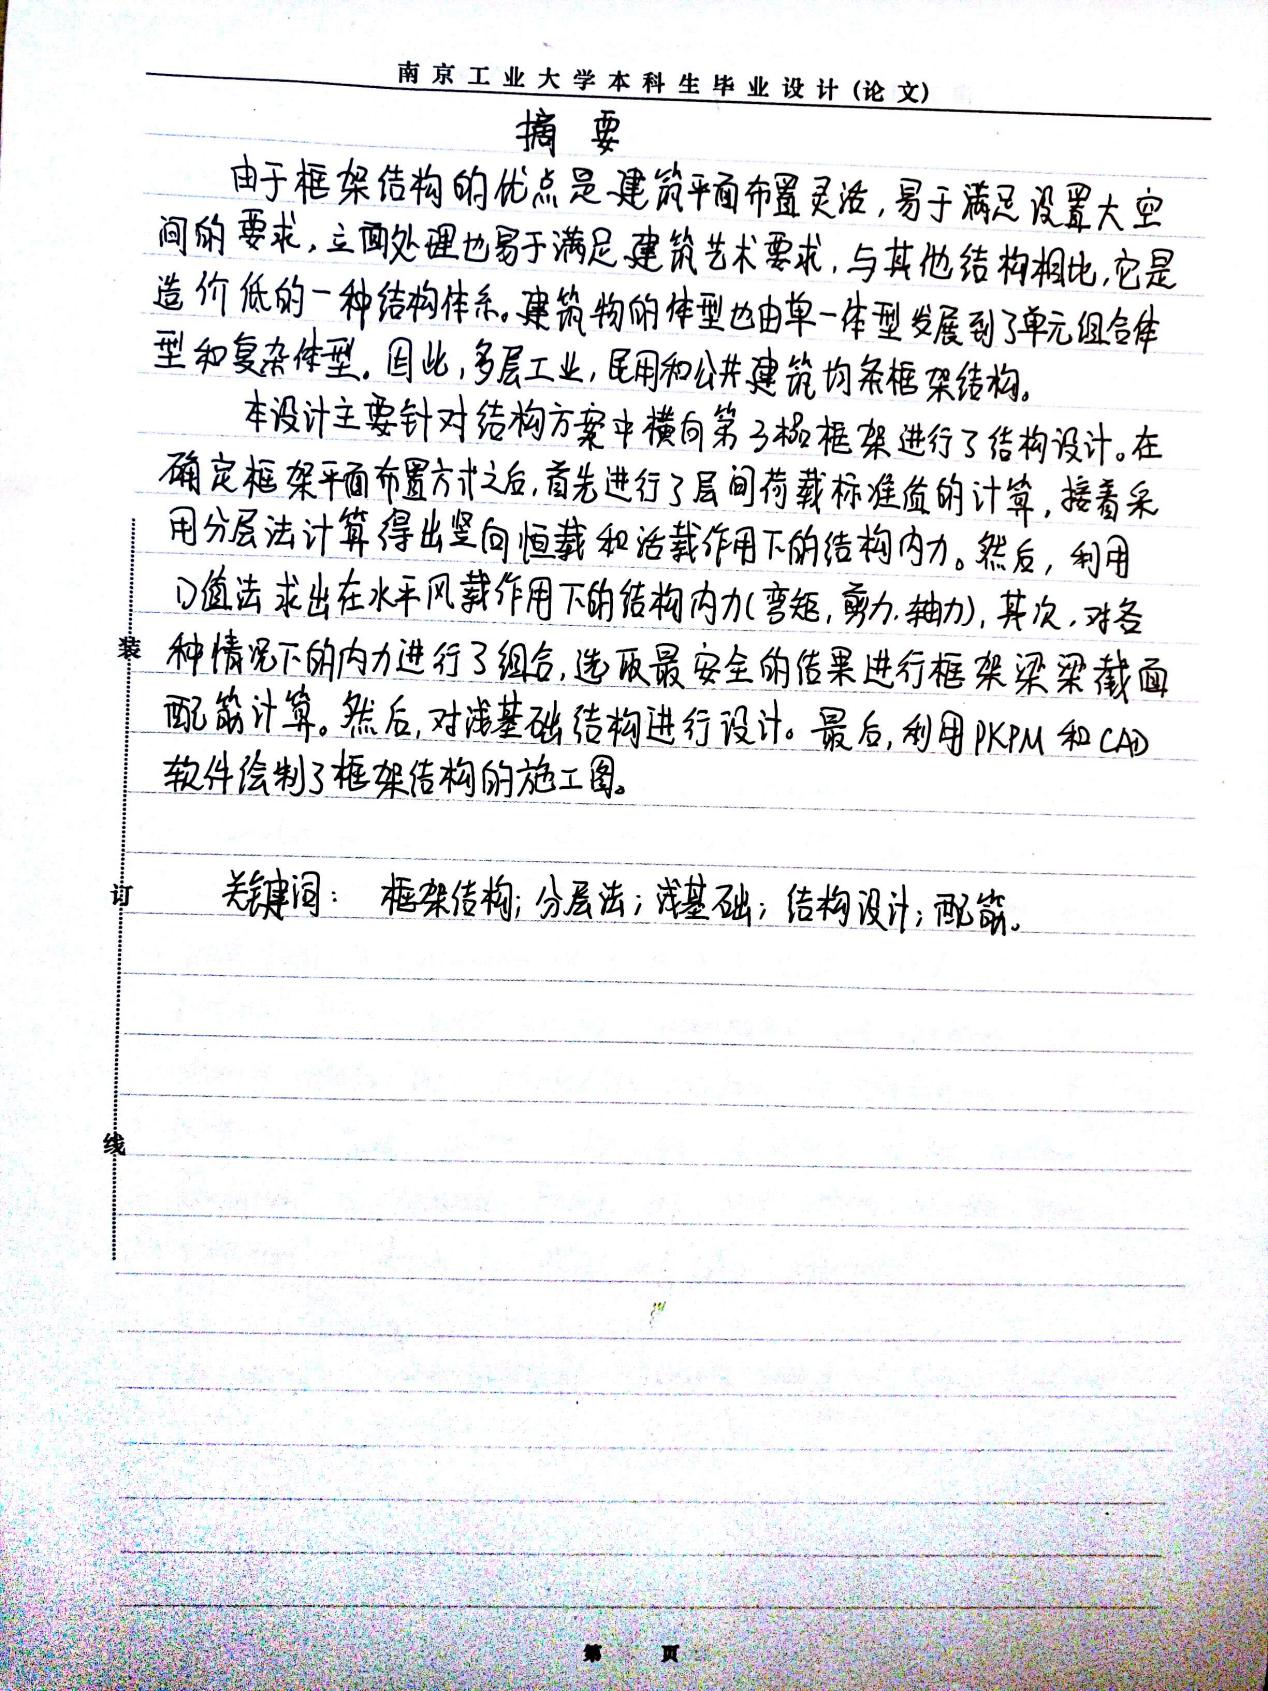 南京工业大学本科生毕业设计(论文)
摘 要
由于框架结构的优点是建筑平面布置灵活,易于满足设置大空
间的要求,立面处理也易于满足建筑艺术要求,与其他结构相比,它是
造价低的一种结构体系。建筑物的体型也由单一体型发展到了单元组合体
型和复杂体型。因此,多层工业,民用和公共建筑均条框架结构。
本设计主要针对结构方案中横向第3榀框架进行了结构设计。在
确定框架平面布置方式之后,首先进行了层间荷载标准值的计算,接着采
用分层法计算得出竖向恒载和活载作用下的结构内力。然后,利用
D值法求出在水平风载作用下的结构内力(弯矩,剪力.轴力),其次.对各
装
种情况下的内力进行了组合,选取最安全的结果进行框架梁梁截面
配筋计算。然后,对浅基础结构进行设计。最后,利用PKPM和CAD
软件绘制了框架结构的施工图。
订
关键词: 框架结构;分层法;浅基础;结构设计;配筋。
线
第 页